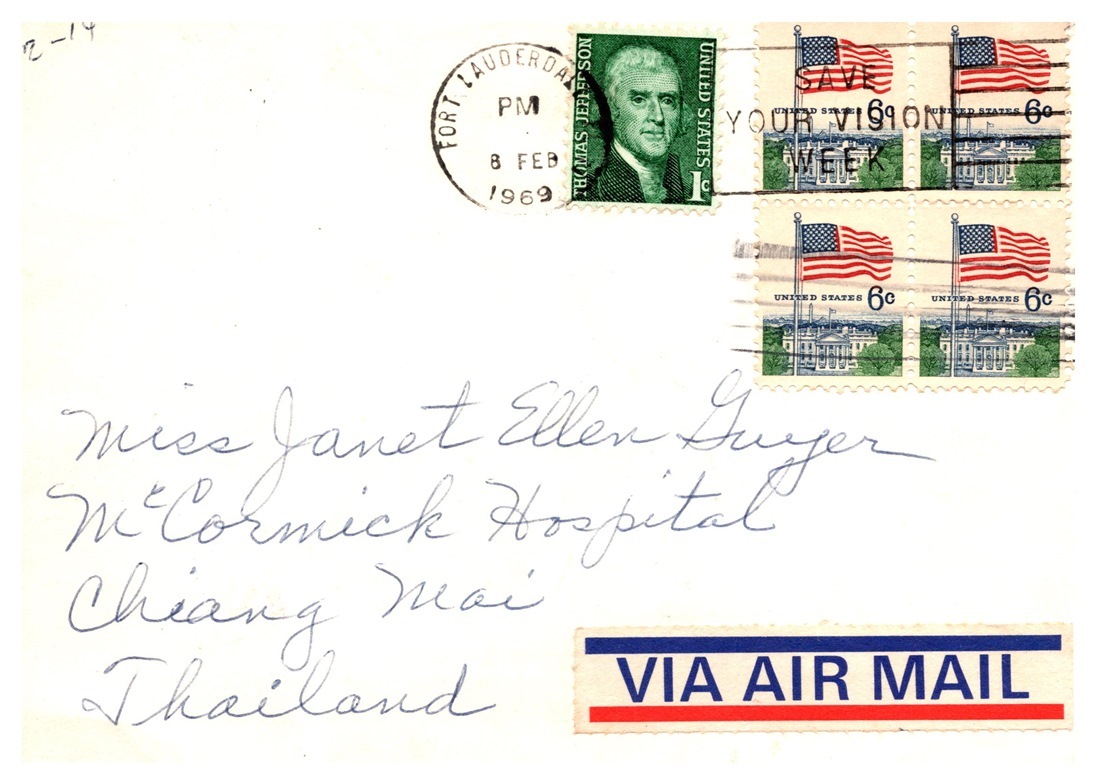 2-14
FORT LAUDERDALE
PM
8 FEB
1969
THOMAS JEFFERSON
UNITED STATES
1c
SAVE
YOUR VISION
WEEK
UNITED STATES 6c
UNITED STATES 6c
UNITED STATES 6c
UNITED STATES 6c
Miss Janet Ellen Guyer
McCormick Hospital
Chiang Mai
Thailand
VIA AIR MAIL